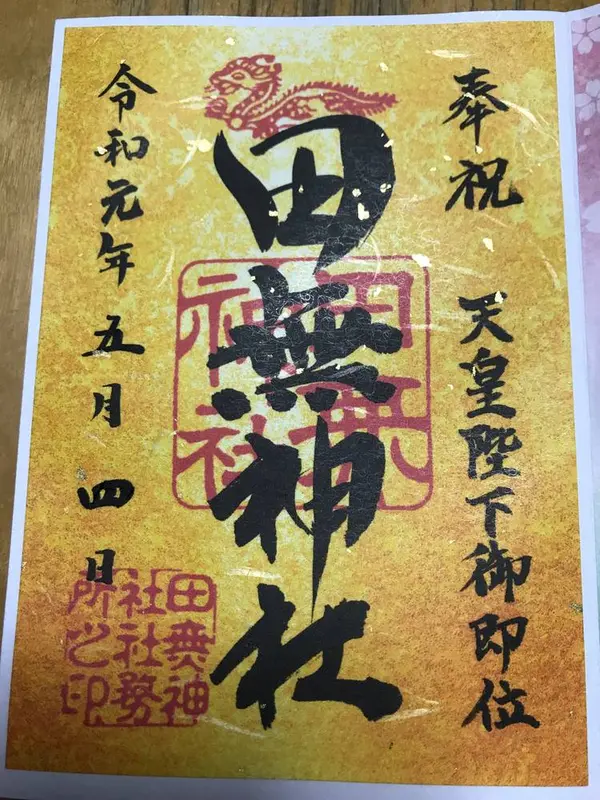 奉祝 天皇陛下御即位
田無神社
田無神社
令和元年 五月 四日
田無神社社務所之印